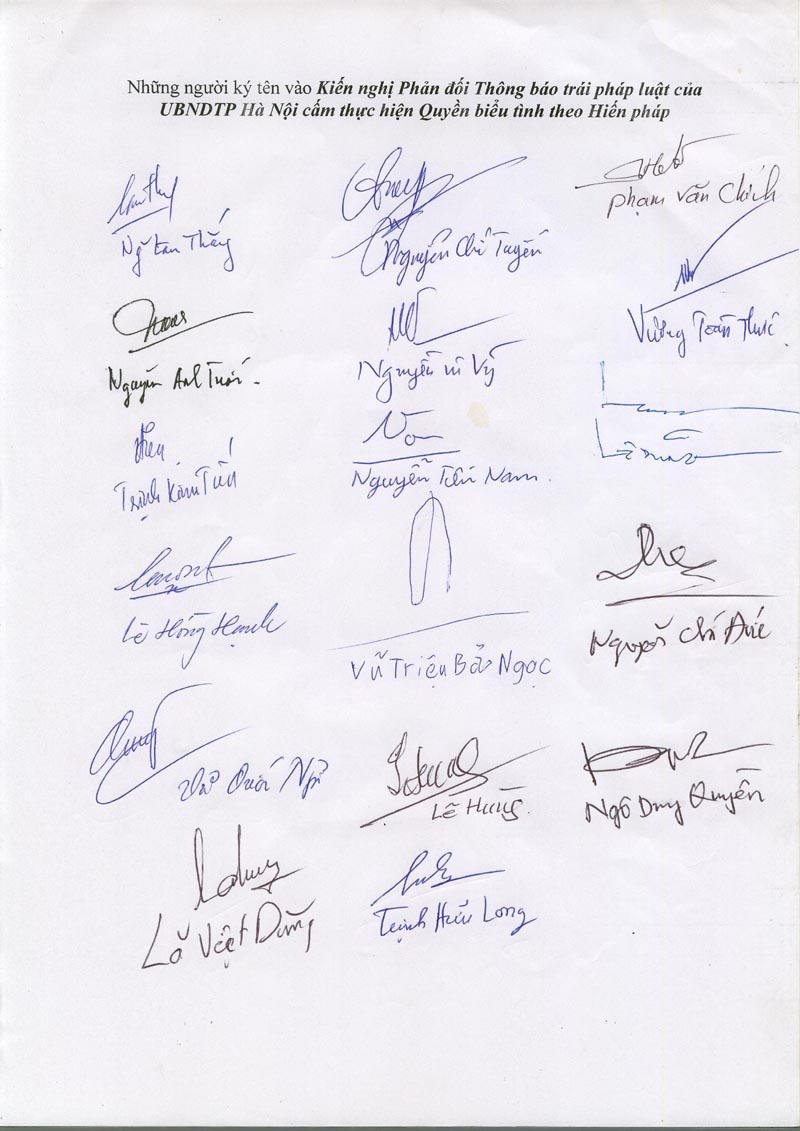 Những người ký tên vào Kiến nghị Phản đối Thông báo trái pháp luật của
UBNDTP Hà Nội cấm thực hiện Quyền biểu tình theo Hiến pháp
Phạm Văn Chích
Nguyễn Chí Tuyến
Vương Toàn Thức
Nguyễn Anh Tuấn
Nguyễn Vi Vỹ
Trịnh Kim Tiến
Nguyễn Tiến Nam
Lê Hồng Hạnh
Vũ Triệu Bảo Ngọc
Nguyễn Chí Đức
Vũ Quốc Ngữ
Lê Hùng
Ngô Duy Quyền
Lã Việt Dũng
Trịnh Hữu Long